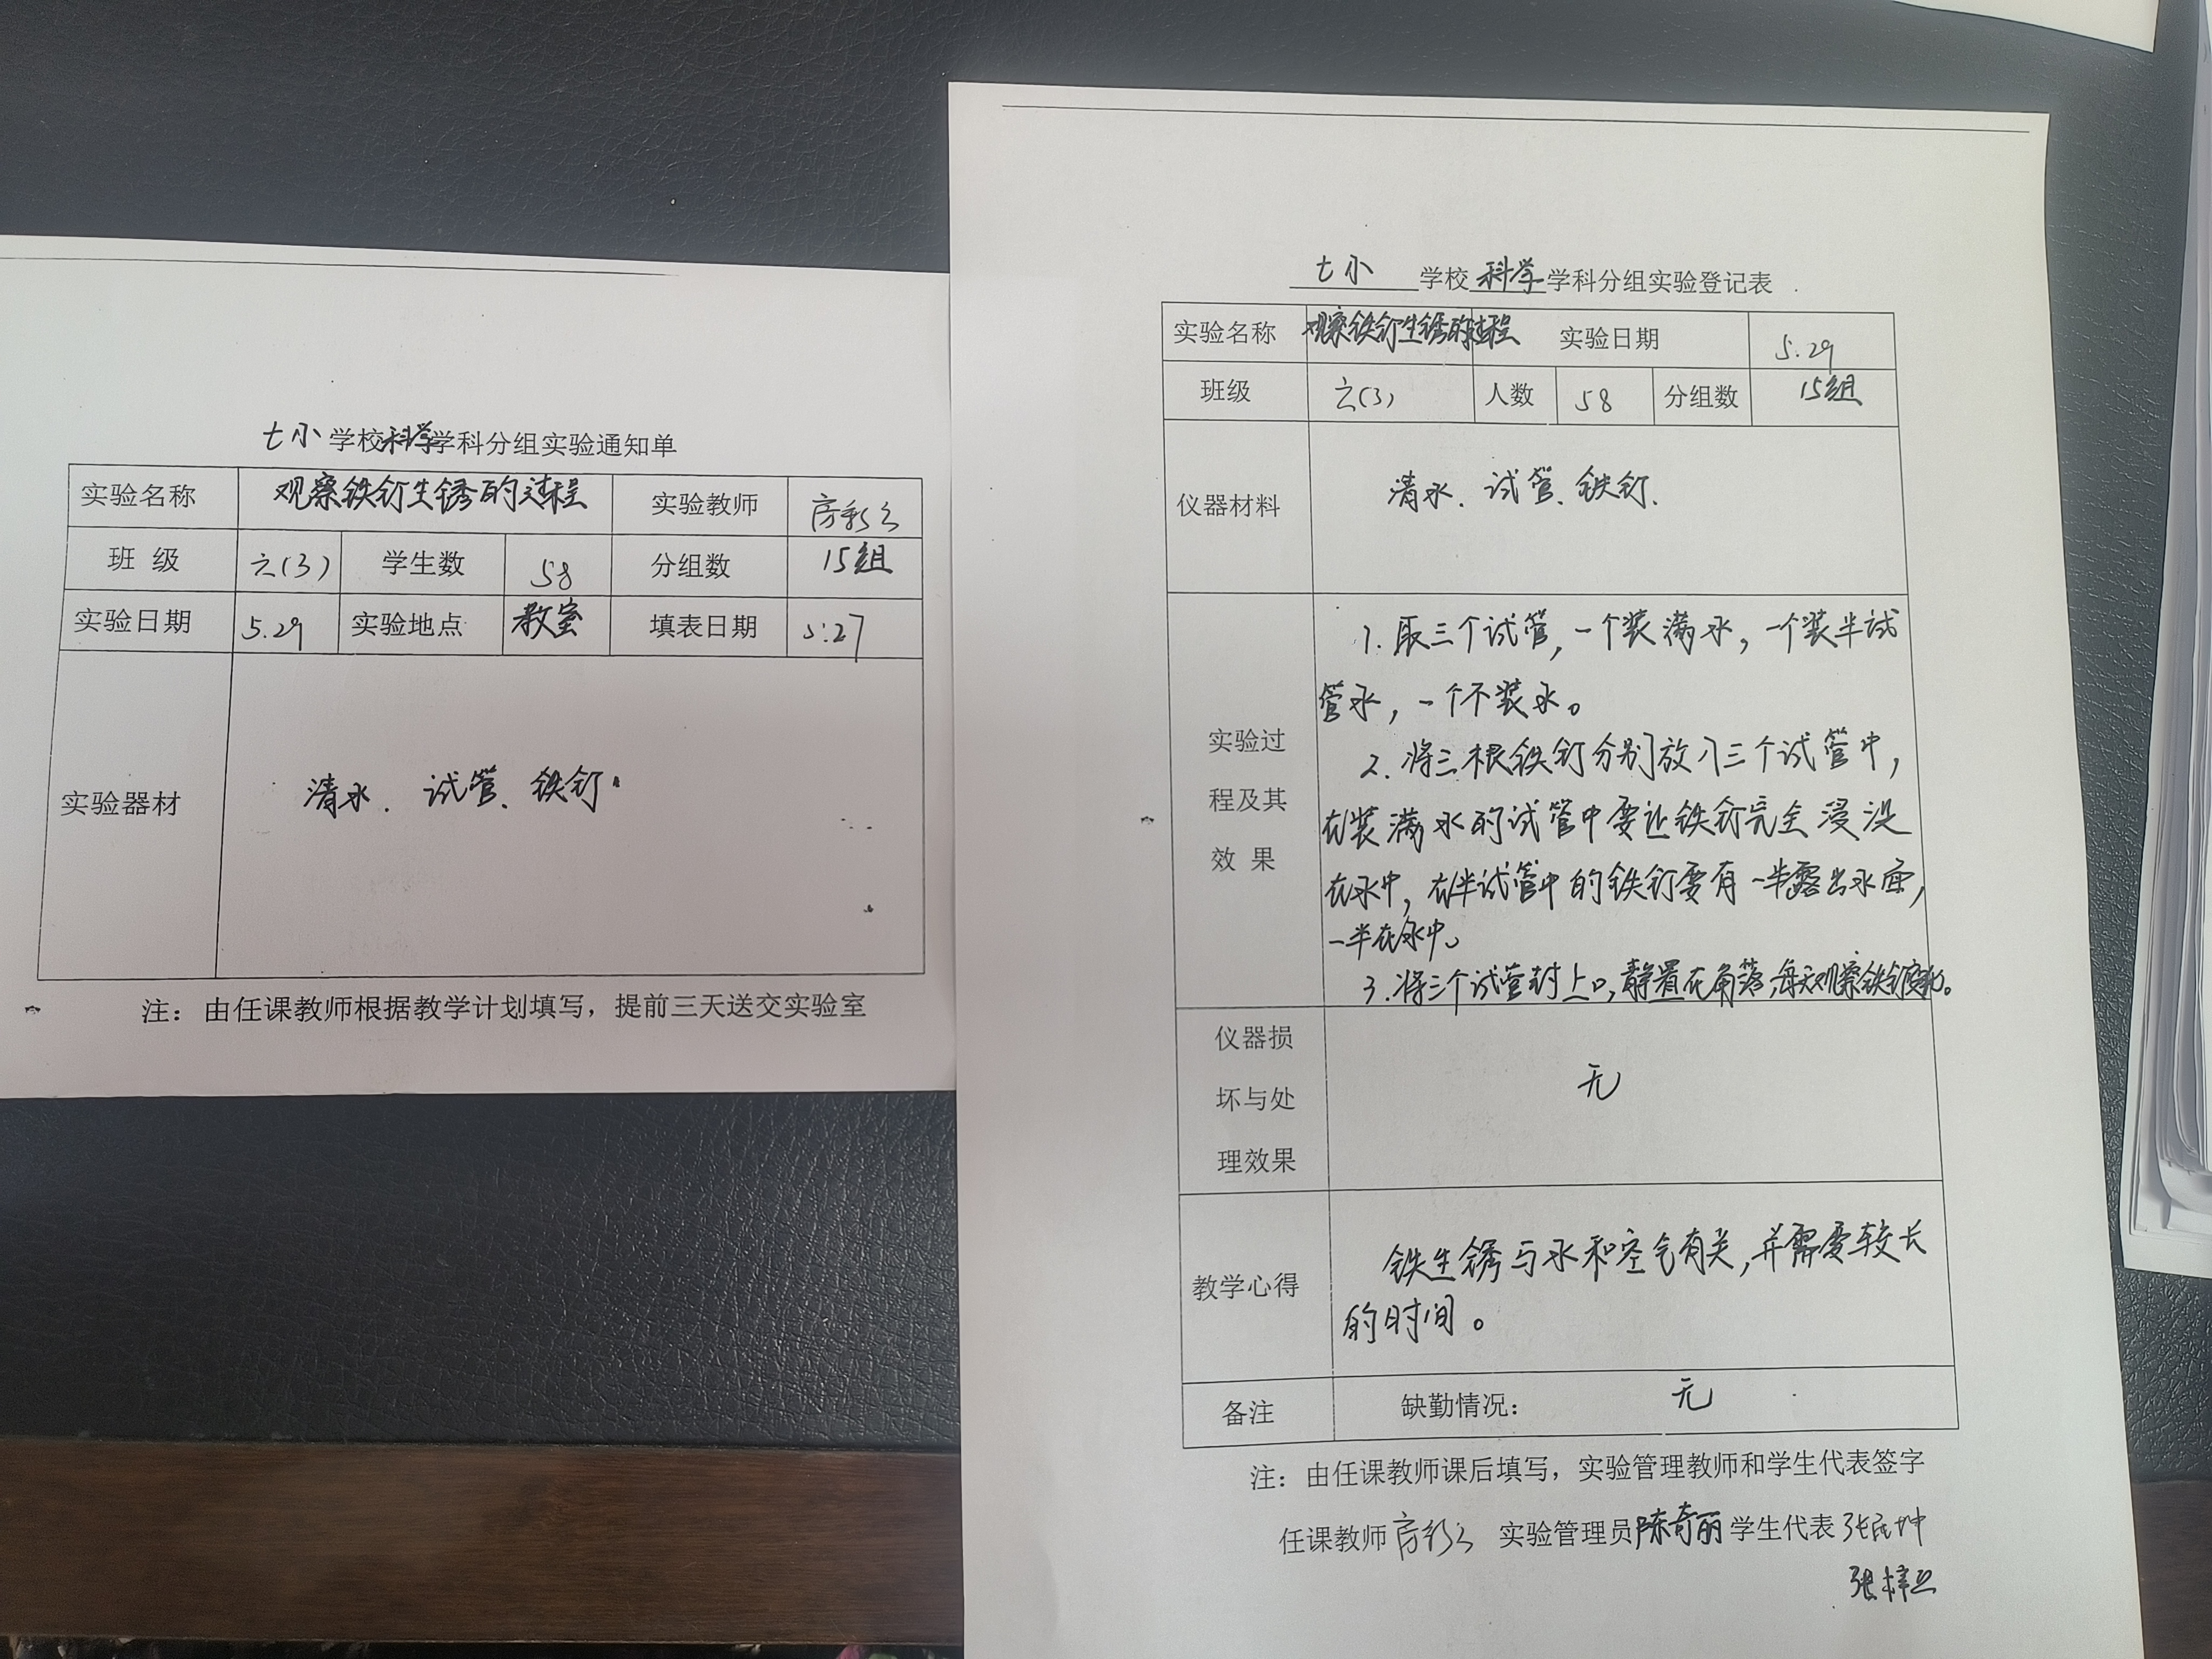 七小学校科学学科分组实验通知单
实验名称 观察铁钉生锈的过程 实验教师 房彩云
班 级 六(3) 学生数 58 分组数 15组
实验日期 5.29 实验地点 教室 填表日期 5.27
实验器材 清水、试管、铁钉。
注：由任课教师根据教学计划填写，提前三天送交实验室
七小 学校 科学 学科分组实验登记表
实验名称 观察铁钉生锈的过程 实验日期 5.29
班级 六(3) 人数 58 分组数 15组
仪器材料 清水、试管、铁钉.
实验过
程及其
效 果
1. 取三个试管，一个装满水，一个装半试
管水，一个不装水。
2. 将三根铁钉分别放入三个试管中，
在装满水的试管中要让铁钉完全浸没
在水中，在半试管中的铁钉要有一半露出水面，
一半在水中。
3. 将三个试管封上口，静置在角落，每天观察铁钉变化。
仪器损
坏与处
理效果
无
教学心得
铁生锈与水和空气有关，并需要较长
的时间。
备注 缺勤情况： 无
注：由任课教师课后填写，实验管理教师和学生代表签字
任课教师 房彩云 实验管理员 陈奇丽 学生代表